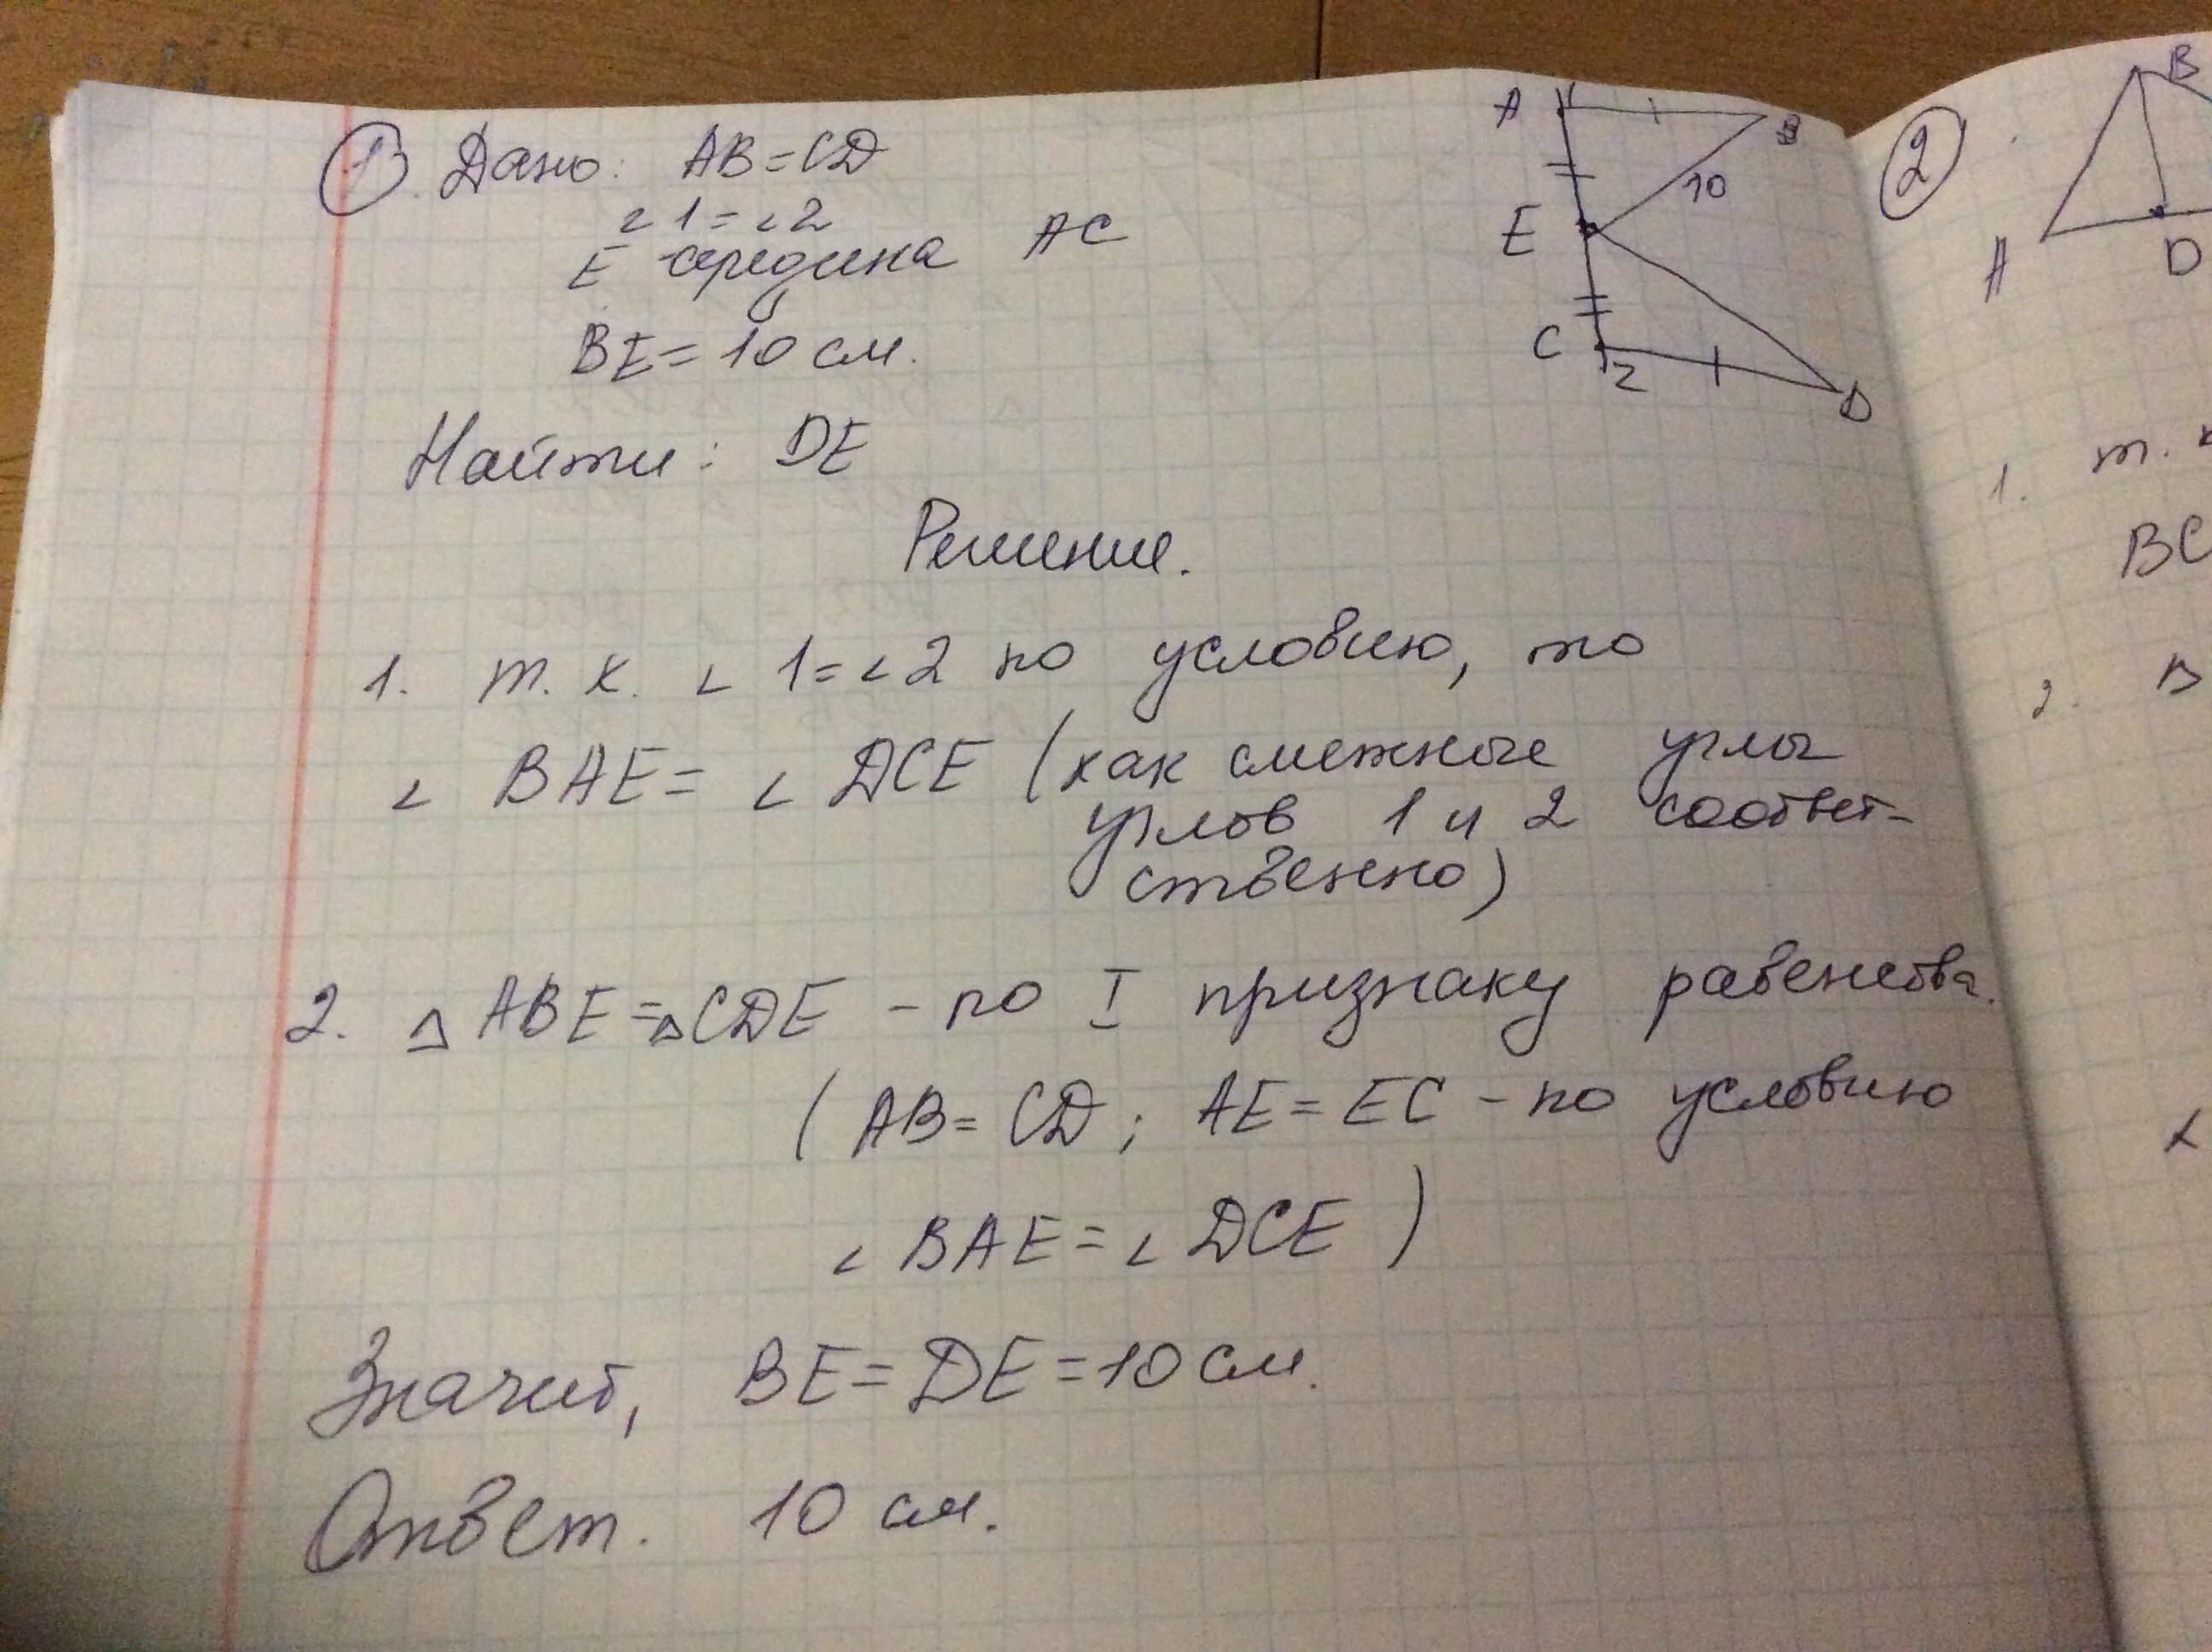 1. Дано: AB = CD
∠1 = ∠2
E середина AC
BE = 10 см.
Найти: DE
Решение.
1. т. к. ∠1 = ∠2 по условию, то
∠ BAE = ∠ DCE (как смежные углы
углов 1 и 2 соответ-
ственно)
2. △ABE = △CDE - по I признаку равенства.
(AB = CD; AE = EC - по условию
∠BAE = ∠DCE)
Значит, BE = DE = 10 см.
Ответ. 10 см.
A
B
10
E
C
2
D
2
B
A
D
1. т.
BC
2. В